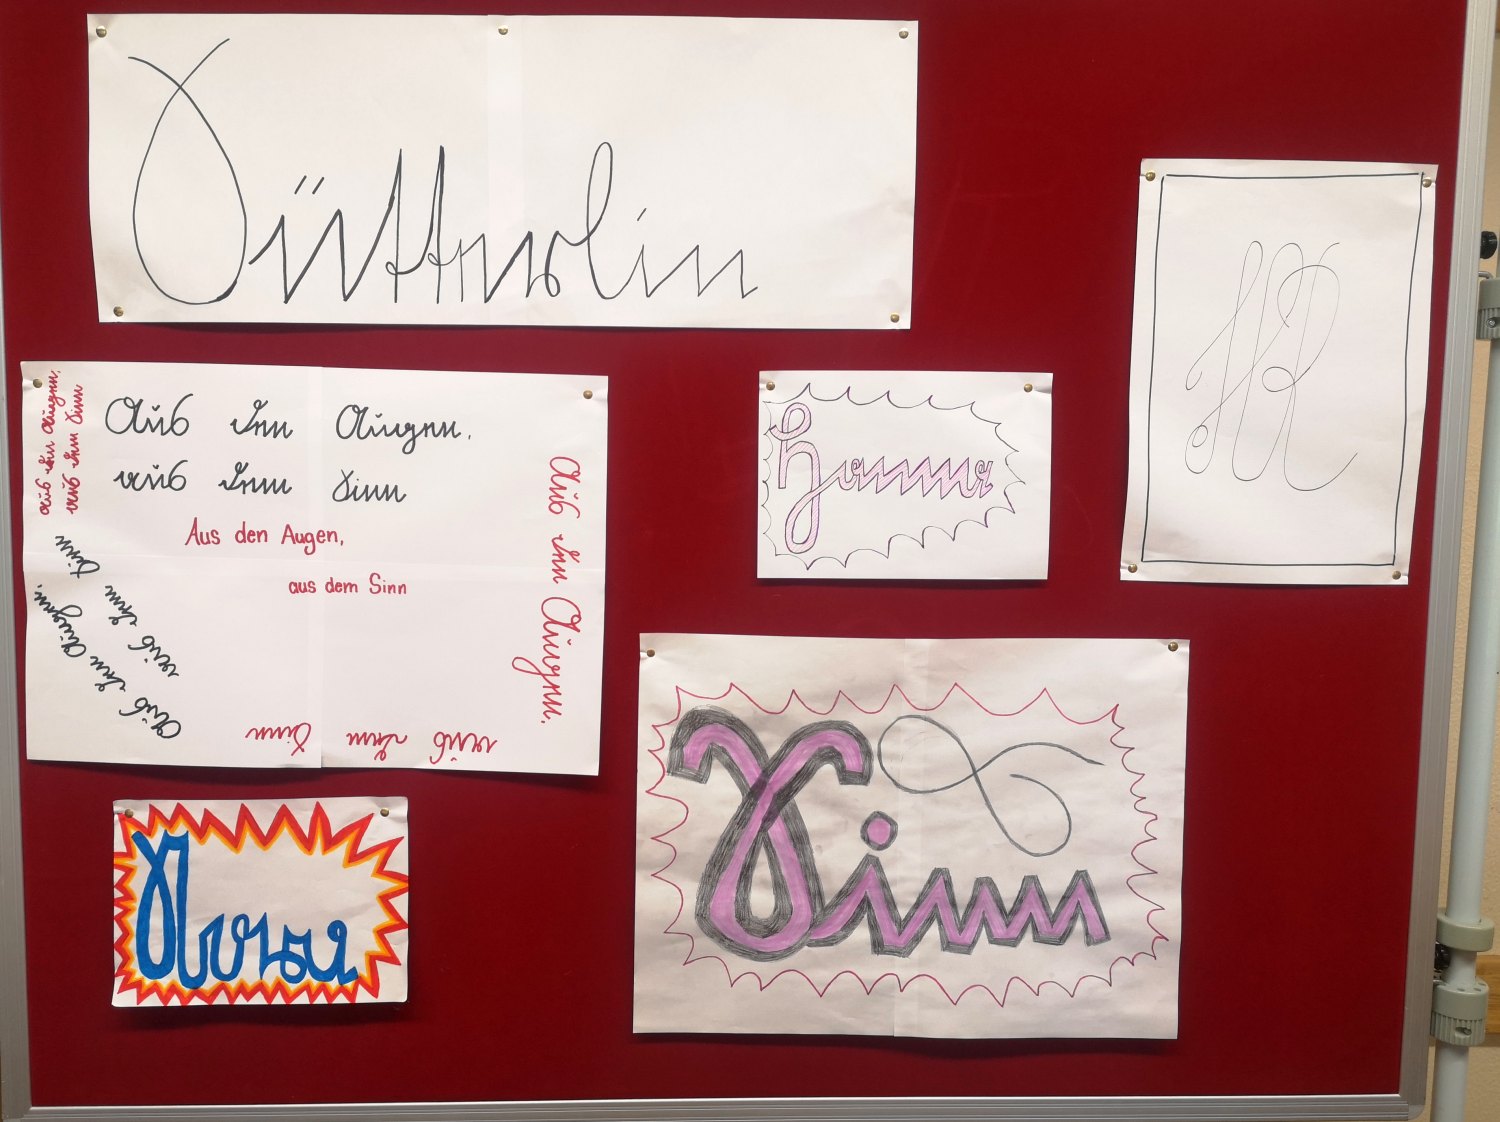 Sütterlin
Aus den Augen,
aus dem Sinn
Aus den Augen,
aus dem Sinn
aus den Augen,
aus dem Sinn
Aus den Augen,
aus dem Sinn
Aus den Augen,
aus dem Sinn
Hanna
Sinn